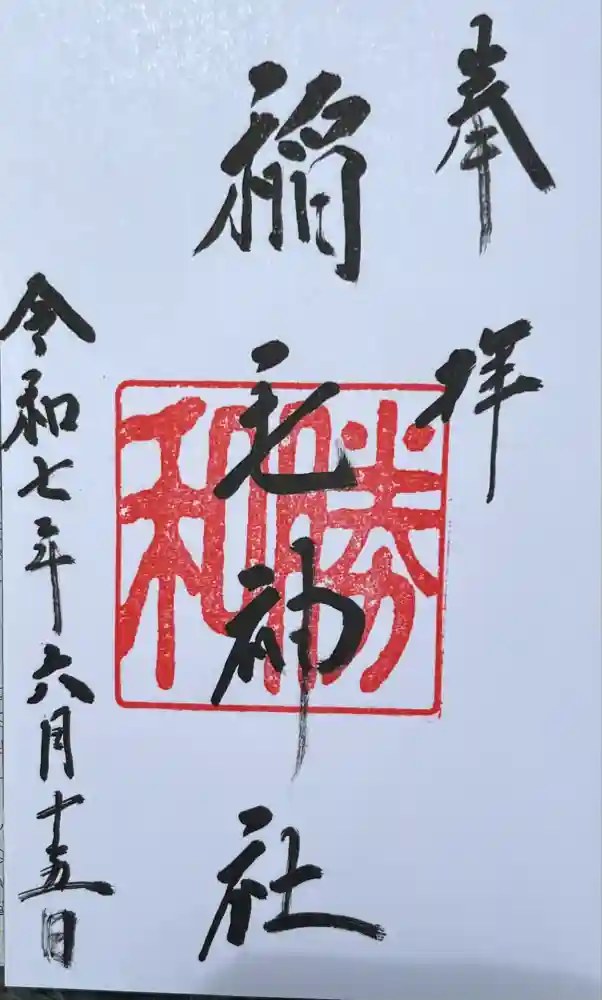 奉拝
稲毛神社
勝和
令和七年六月十五日